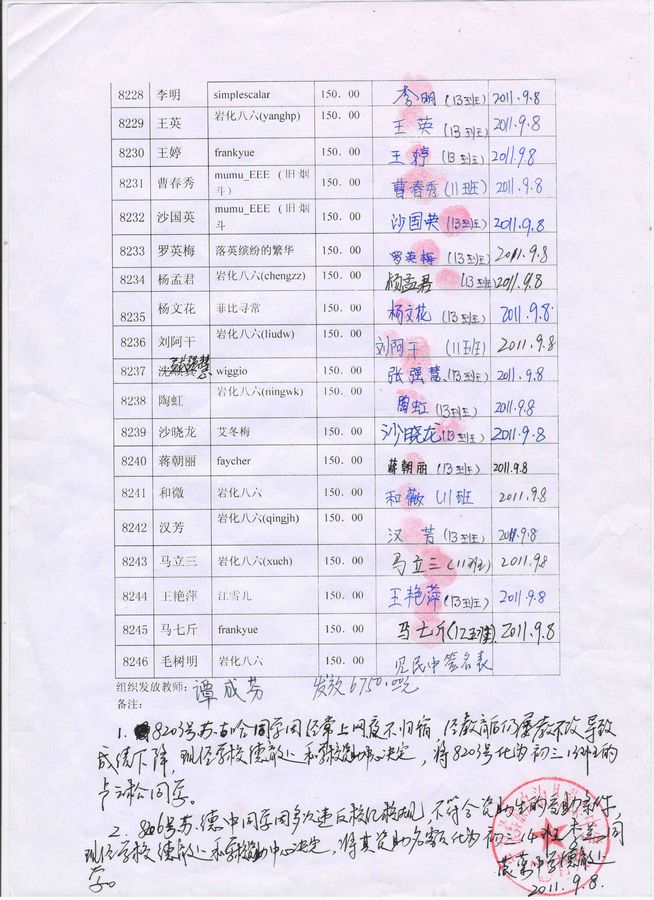 8228 李明 simplescalar 150.00 李明(13班) 2011.9.8
8229 王英 岩化八六(yanghp) 150.00 王英(13班) 2011.9.8
8230 王婷 frankyue 150.00 王婷(13班) 2011.9.8
8231 曹春秀 mumu_EEE (旧烟
斗) 150.00 曹春秀(11班) 2011.9.8
8232 沙国英 mumu_EEE (旧烟
斗 150.00 沙国英(13班) 2011.9.8
8233 罗英梅 落英缤纷的繁华 150.00 罗英梅(13班) 2011.9.8
8234 杨孟君 岩化八六(chengzz) 150.00 杨孟君(13班) 2011.9.8
8235 杨文花 菲比寻常 150.00 杨文花(13班) 2011.9.8
8236 刘阿干 岩化八六(liudw) 150.00 刘阿干(11班) 2011.9.8
8237 张强慧 wiggio 150.00 张强慧(13班) 2011.9.8
8238 陶虹 岩化八六(ningwk) 150.00 陶虹(13班) 2011.9.8
8239 沙晓龙 艾冬梅 150.00 沙晓龙(13班) 2011.9.8
8240 蒋朝丽 faycher 150.00 蒋朝丽(13班) 2011.9.8
8241 和微 岩化八六 150.00 和薇 11班 2011.9.8
8242 汉芳 岩化八六(qingjh) 150.00 汉芳(13班) 2011.9.8
8243 马立三 岩化八六(xuch) 150.00 马立三(11班) 2011.9.8
8244 王艳萍 江雪儿 150.00 王艳萍(13班) 2011.9.8
8245 马七斤 frankyue 150.00 马七斤(12班) 2011.9.8
8246 毛树明 岩化八六 150.00 见民中签名表
组织发放教师: 谭成芬 发放6750.00元
备注:
1. 8203号苏古哈同学因经常上网夜不归宿,经教育后仍屡教不改,导致
成绩下降,现经学校德教处和学校资助中心决定,将8203号化为初三13班的
同学。
2. 8206号苏德中同学因多次违反校纪校规,不符合资助生的资助条件,
现经学校德教处和学校资助中心决定,将其资助名额化为初三14班 同
学。 中学德教处
2011.9.8.